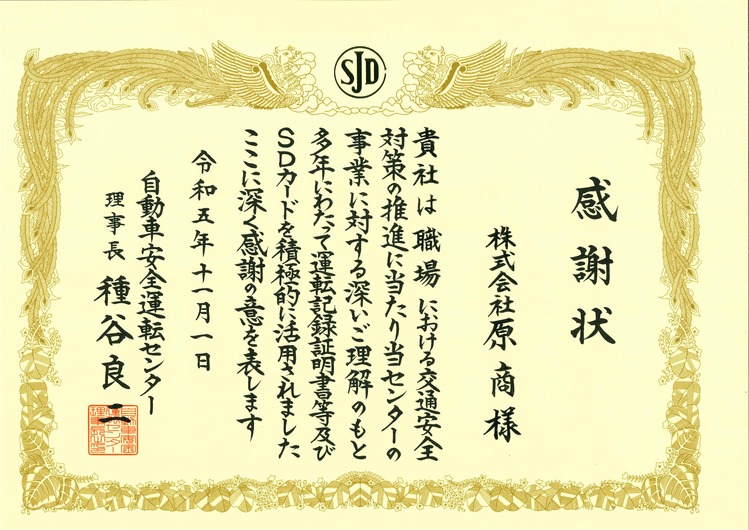 SJD
感謝状
株式会社原商様
貴社は職場における交通安全
対策の推進に当たり当センターの
事業に対する深いご理解のもと
多年にわたって運転記録証明書等及び
SDカードを積極的に活用されました
ここに深く感謝の意を表します
令和五年十一月一日
自動車安全運転センター
理事長 種谷良二